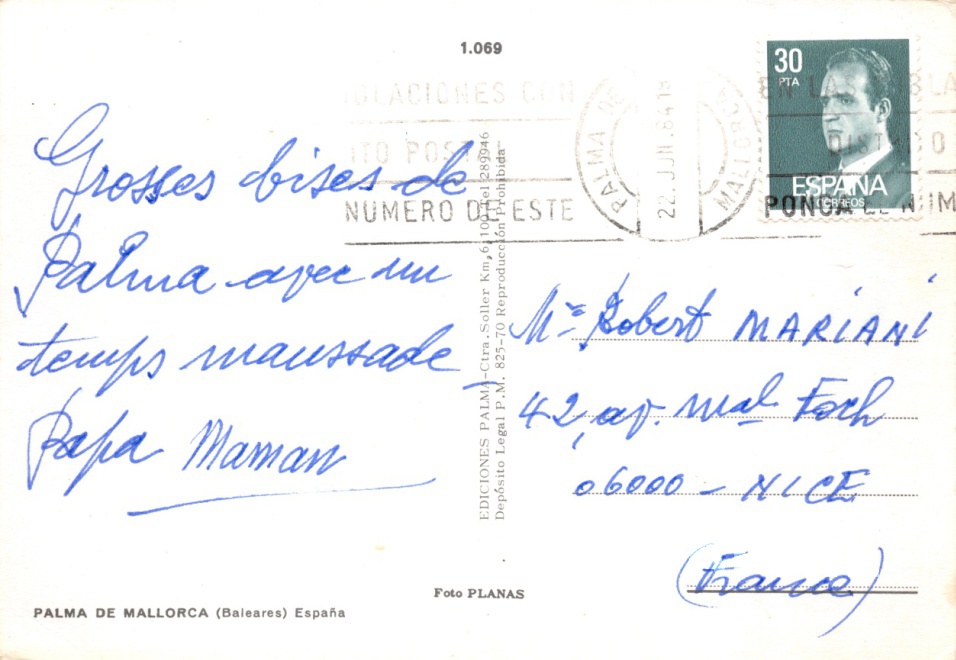 1.069
30
PTA
ESPAÑA
CORREOS
PALMA DE
22. JUN. 84
MALLORCA
NUMERO DE ESTE
PONGA EL NUM
Grosses bises de
Palma avec un
temps maussade
Papa Maman
EDICIONES PALMA-Ctra. Soller Km, 6,100 Tel 289946
Depósito Legal P.M. 825-70 Reproducción Prohibida
Robert MARIANI
42, av. mal Foch
06000 - NICE
(France)
Foto PLANAS
PALMA DE MALLORCA (Baleares) España